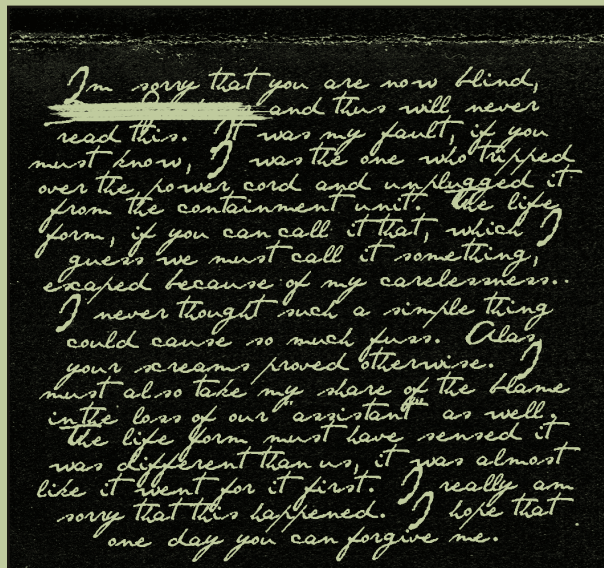 I'm sorry that you are now blind,
and thus will never
read this. It was my fault, if you
must know, I was the one who tripped
over the power cord and unplugged it
from the containment unit. The life
form, if you can call it that, which I
guess we must call it something,
escaped because of my carelessness..
I never thought such a simple thing
could cause so much fuss. Alas
your screams proved otherwise. I
must also take my share of the blame
in the loss of our "assistant" as well.
The life form must have sensed it
was different than us, it was almost
like it went for it first. I really am
sorry that this happened. I hope that
one day you can forgive me.